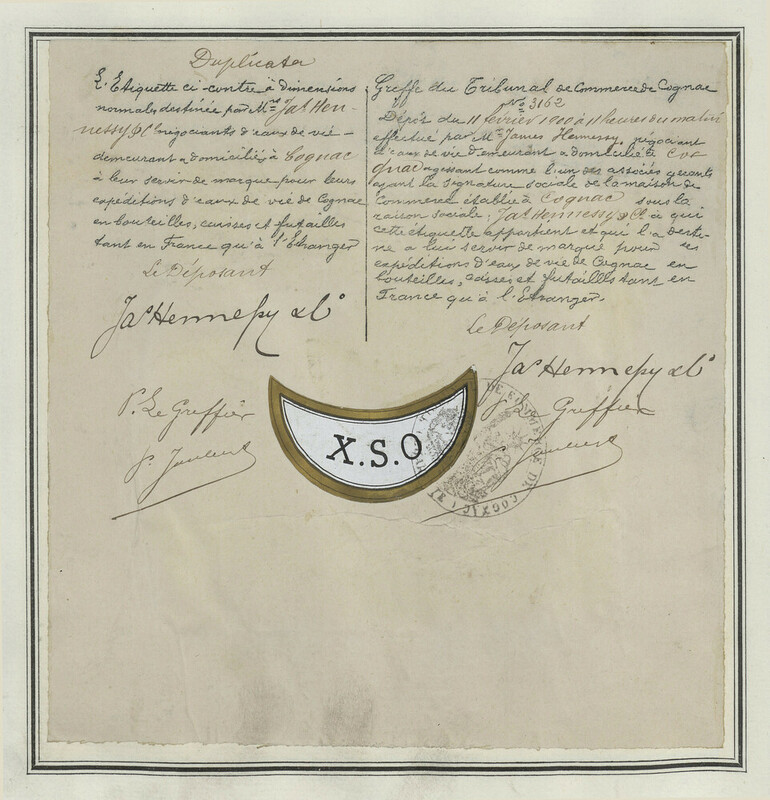 Duplicata
L'Etiquette ci-contre à dimensions
normales destinée par Mrs Jas Hen-
nessy & Co négociants d'eaux de vie -
demeurant & domiciliés à Cognac
à leur servir de marque pour leurs
expéditions d'eaux de vie de Cognac
en bouteilles, caisses et futailles
tant en France qu'à l'Etranger
Le Déposant
Jas Hennessy & Co
P. Le Greffier
Greffe du Tribunal de Commerce de Cognac
No 3162
Dépôt du 11 février 1910 à 11 heures du matin
effectué par Mr James Hennessy, négociant
d'eaux de vie demeurant & domicilié à Co
gnac agissant comme l'un des associés gérants
ayant la signature sociale de la maison de
Commerce établie à Cognac sous la
raison sociale, Jas Hennessy & Co à qui
cette étiquette appartient et qui l'a desti-
né à lui servir de marque pour ses
expéditions d'eaux de vie de Cognac en
bouteilles, caisses et futailles tant en
France qu'à l'Etranger.
Le Déposant
Jas Hennessy & Co
P. Le Greffier
X.S.O
DE COGNAC